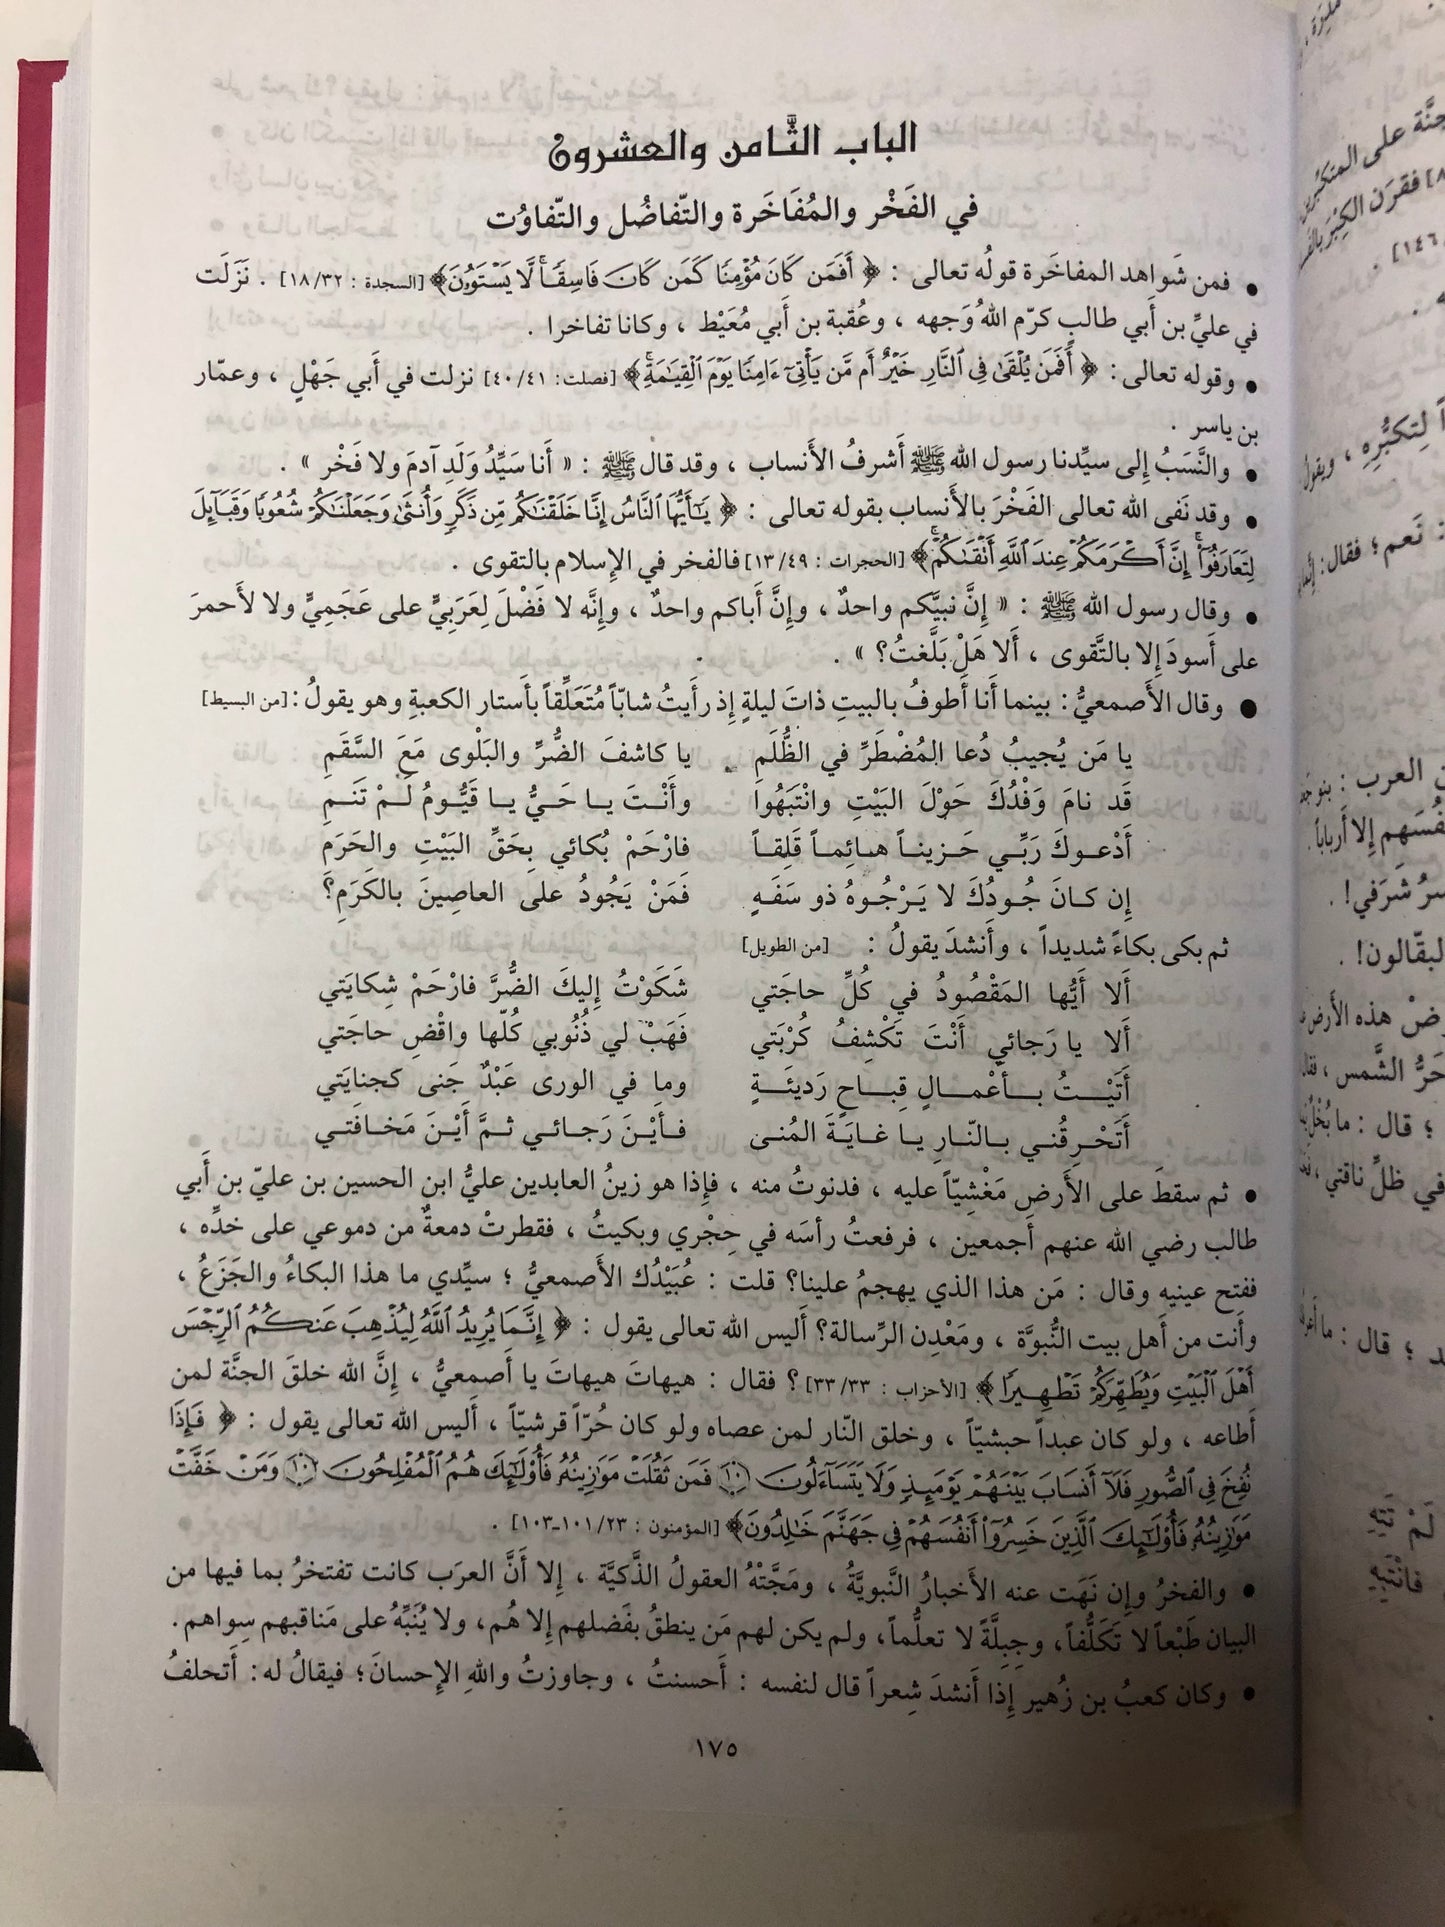 الباب الثَّامن والعشرون
في الفَخْر والمُفَاخَرة والتّفاضُل والتّفاوُت
● فمن شَواهد المفاخَرة قولُه تعالى : ﴿ أَفَمَن كَانَ مُؤْمِنًا كَمَن كَانَ فَاسِقًاۚ لَّا يَسْتَوُۥنَ﴾ [السجدة : ١٨/٣٢] . نَزَلَت
في عليِّ بن أَبي طالبٍ كرّم اللهُ وَجهه ، وعُقبة بن أَبي مُعَيْط ، وكانا تفاخرا .
● وقوله تعالى : ﴿ أَفَمَن يُلْقَىٰ فِى ٱلنَّارِ خَيْرٌ أَم مَّن يَأْتِىٓ ءَامِنًا يَوْمَ ٱلْقِيَٰمَةِۚ﴾ [فصلت: ٤٠/٤١] نزلت في أَبي جَهْلٍ ، وعمّار
بن ياسر .
● والنَّسَبُ إلى سيِّدنا رسول الله ﷺ أَشرفُ الأَنساب ، وقد قال ﷺ : « أَنا سَيِّدُ وَلَدِ آدمَ ولا فَخْر » .
● وقد نَفى الله تعالى الفَخْرَ بالأَنساب بقوله تعالى : ﴿ يَٰٓأَيُّهَا ٱلنَّاسُ إِنَّا خَلَقْنَٰكُم مِّن ذَكَرٍ وَأُنثَىٰ وَجَعَلْنَٰكُمْ شُعُوبًا وَقَبَآئِلَ
لِتَعَارَفُوٓا۟ۚ إِنَّ أَكْرَمَكُمْ عِندَ ٱللَّهِ أَتْقَىٰكُمْۚ﴾ [الحجرات : ١٣/٤٩] فالفخر في الإسلام بالتقوى .
● وقال رسول الله ﷺ : « إنَّ نبيَّكم واحدٌ ، وإنَّ أَباكم واحدٌ ، وإنَّه لا فَضْلَ لِعَرَبيٍّ على عَجَمِيٍّ ولا لأَحمرَ
على أَسودَ إلا بالتَّقوى ، أَلا هَلْ بَلَّغتُ؟ » .
● وقال الأَصمعيُّ : بينما أَنا أَطوفُ بالبيتِ ذاتَ ليلةٍ إذ رأَيتُ شابّاً مُتَعَلِّقاً بأَستار الكعبةِ وهو يقولُ : [من البسيط]
يا مَن يُجيبُ دُعا المُضْطَرِّ في الظُّلَمِ يا كاشفَ الضُّرِّ والبَلْوى مَعَ السَّقَمِ
قَد نامَ وَفْدُكَ حَوْلَ البَيْتِ وانْتَبَهُوا وأَنْتَ يا حَيُّ يا قَيُّومُ لَمْ تَنَمِ
أَدْعوكَ رَبِّي حَزيناً هائِماً قَلِقاً فارْحَمْ بُكائي بِحَقِّ البَيْتِ والحَرَمِ
إن كانَ جُودُكَ لا يَرْجُوهُ ذو سَفَهٍ فَمَنْ يَجُودُ على العاصِينَ بالكَرَمِ؟
ثم بكى بكاءً شديداً ، وأَنشدَ يقولُ : [من الطويل]
أَلا أَيُّها المَقْصُودُ في كُلِّ حاجَتي شَكَوْتُ إليكَ الضُّرَّ فارْحَمْ شِكايَتي
أَلا يا رَجائي أَنْتَ تَكْشِفُ كُرْبَتي فَهَبْ لي ذُنُوبي كُلّها واقْضِ حاجَتي
أَتَيْتُ بأَعْمالٍ قِباحٍ رَديئَةٍ وما في الورى عَبْدٌ جَنى كجِنايَتي
أَتَحْرِقُني بالنّارِ يا غايَةَ المُنى فأَيْنَ رَجائي ثمَّ أَيْنَ مَخافَتي
● ثم سقطَ على الأَرضِ مَغْشِيّاً عليه ، فدنوتُ منه ، فإذا هو زينُ العابدين عليُّ ابن الحسين بن عليّ بن أَبي
طالب رضي الله عنهم أَجمعين ، فرفعتُ رأسَه في حِجْري وبكيتُ ، فقطرتْ دمعةٌ من دموعي على خدِّه ،
ففتح عينيهِ وقال : مَن هذا الذي يهجمُ علينا؟ قلت : عُبَيْدُك الأَصمعيُّ ؛ سيِّدي ما هذا البكاءُ والجَزَعُ ،
وأَنت من أَهل بيت النُّبوَّة ، ومَعْدِن الرِّسالة؟ أَليس الله تعالى يقول : ﴿ إِنَّمَا يُرِيدُ ٱللَّهُ لِيُذْهِبَ عَنكُمُ ٱلرِّجْسَ
أَهْلَ ٱلْبَيْتِ وَيُطَهِّرَكُمْ تَطْهِيرًا ﴾ [الأحزاب : ٣٣/٣٣] ؟ فقال : هيهاتَ هيهاتَ يا أَصمعيُّ ، إنَّ الله خلقَ الجنَّة لمن
أَطاعه ، ولو كان عبداً حبشيّاً ، وخلق النّار لمن عصاه ولو كان حُرّاً قرشيّاً ، أَليس الله تعالى يقول : ﴿ فَإِذَا
نُفِخَ فِى ٱلصُّورِ فَلَآ أَنسَابَ بَيْنَهُمْ يَوْمَئِذٍ وَلَا يَتَسَآءَلُونَ ۝ فَمَن ثَقُلَتْ مَوَٰزِينُهُۥ فَأُو۟لَٰٓئِكَ هُمُ ٱلْمُفْلِحُونَ ۝ وَمَنْ خَفَّتْ
مَوَٰزِينُهُۥ فَأُو۟لَٰٓئِكَ ٱلَّذِينَ خَسِرُوٓا۟ أَنفُسَهُمْ فِى جَهَنَّمَ خَٰلِدُونَ﴾ [المؤمنون : ١٠١/٢٣-١٠٣] .
● والفخرُ وإن نَهَت عنه الأَخبارُ النَّبويَّةُ ، ومَجَّتْهُ العقولُ الذَّكيَّة ، إلا أَنَّ العرَب كانت تفتخرُ بما فيها من
البيان طَبْعاً لا تَكَلُّفاً ، وجِبِلَّةً لا تعلُّماً ، ولم يكن لهم مَن ينطقُ بفَضلهم إلا هُم ، ولا يُنَبِّهُ على مَناقبهم سِواهم .
● وكان كعبُ بن زُهير إذا أَنشدَ شِعراً قال لنفسه : أَحسنتُ ، وجاوزتُ واللهِ الإحسانَ ؛ فيقالُ له : أَتحلفُ
١٧٥